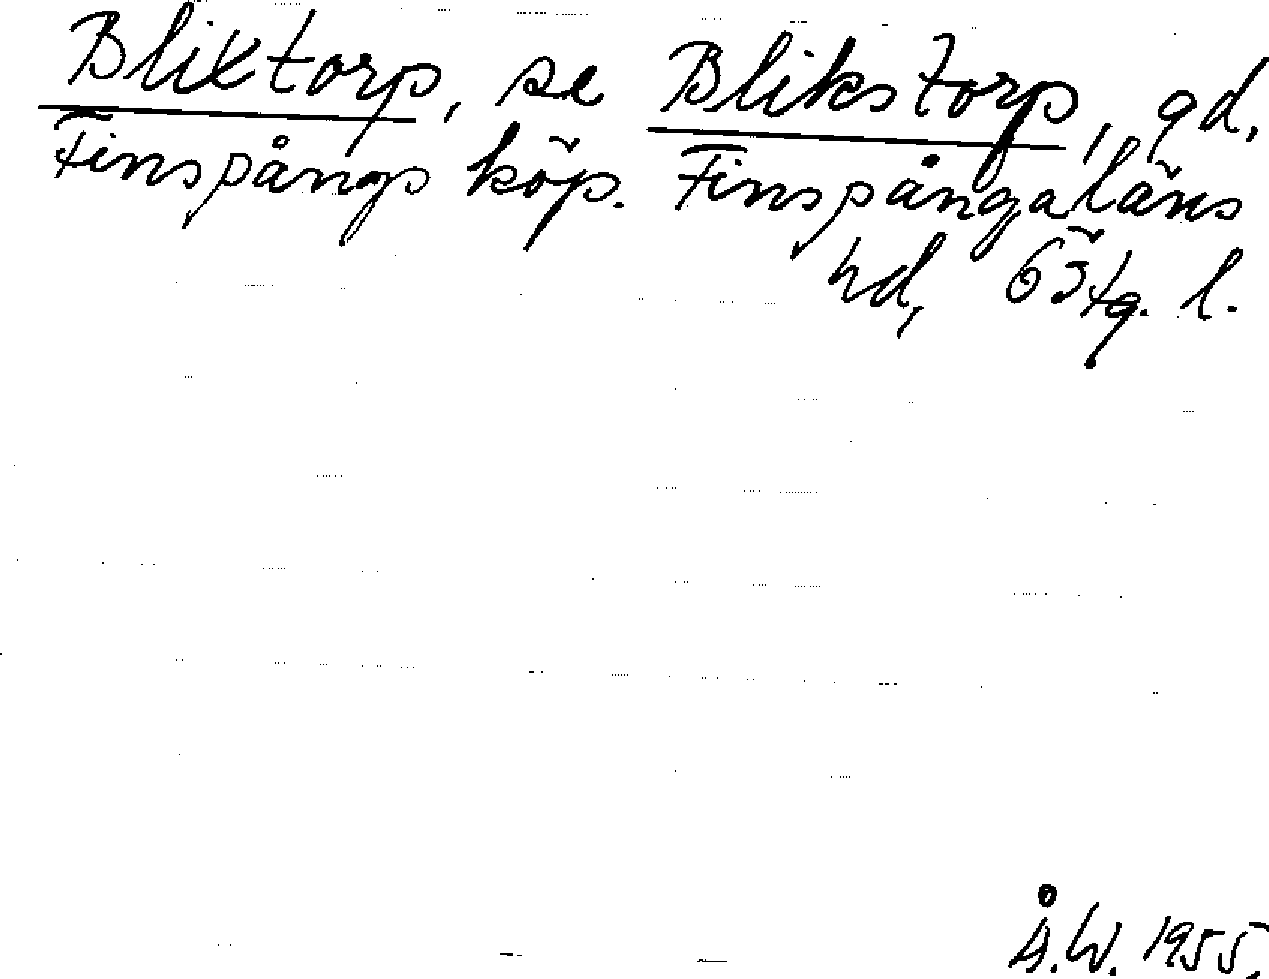 Blixtorp, se Blikstorp, gd,
Finspångs köp. Finspångaläns
hd, Östg. l.
Å.W. 1955.